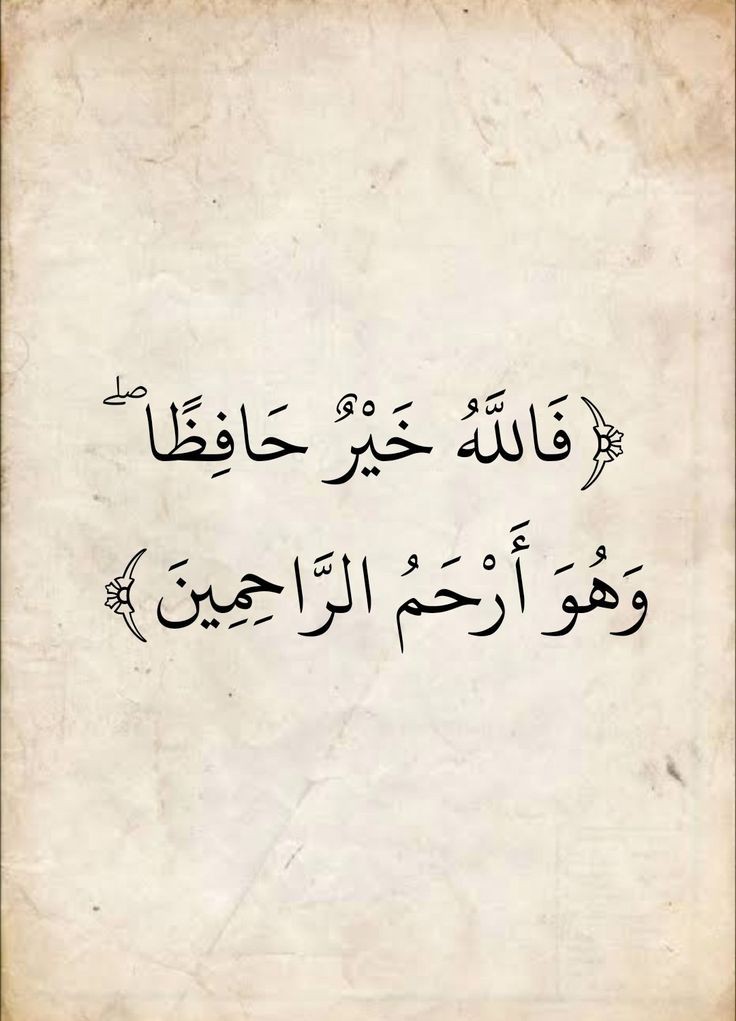 ﴿فَاللَّهُ خَيْرٌ حَافِظًا ۖ
وَهُوَ أَرْحَمُ الرَّاحِمِينَ﴾